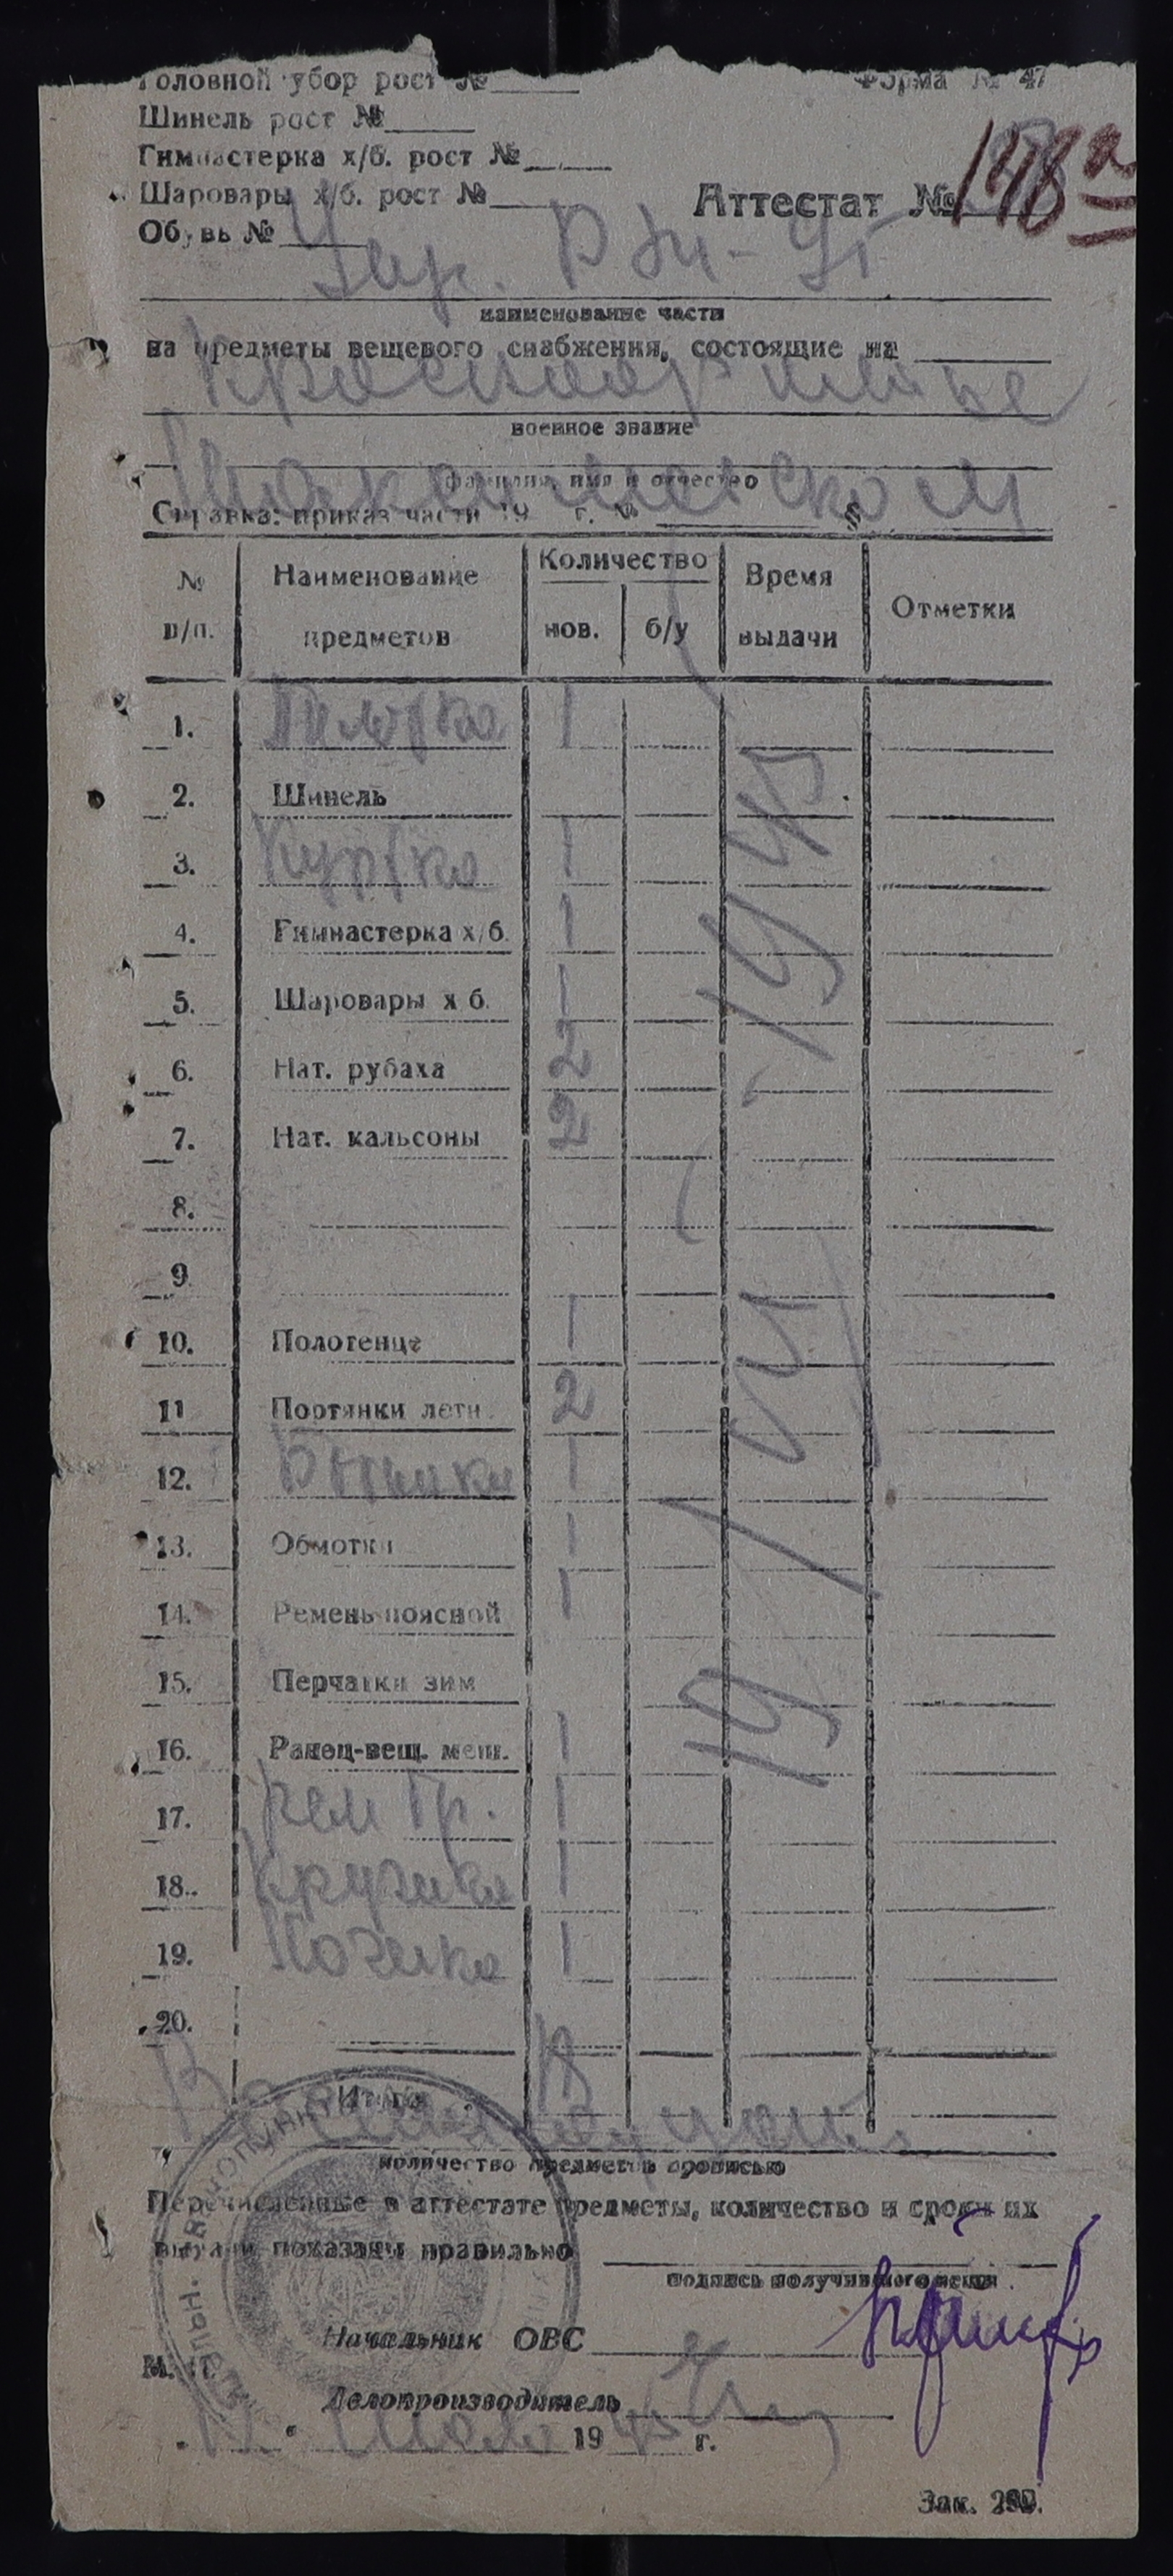 Головной убор рост №
Форма № 47
Шинель рост №
Гимнастерка х/б. рост №
Шаровары х/б. рост №
Аттестат № 148а
Обувь №
наименование части
на предметы вещевого снабжения, состоящие на
Красноармейце
военное звание
фамилия, имя и отчество
Справка: приказ части 19 г. № §
№ п/п. Наименование предметов Количество нов. б/у Время выдачи Отметки
1. Пилотка 1
2. Шинель
3. Куртка 1
4. Гимнастерка х/б. 1
5. Шаровары х б. 1
6. Нат. рубаха 2
7. Нат. кальсоны 2
8.
9
10. Полотенце 1
11 Портянки летн. 2
12. Ботинки 1
13. Обмотки 1
14. Ремень поясной 1
15. Перчатки зим
16. Ранец-вещ. меш. 1
17. рем бр. 1
18. Кружка 1
19. Ложка 1
20.
1945
Итого
количество предметов прописью
Перечисленные в аттестате предметы, количество и сроки их
выдачи показаны правильно
подпись получившего вещи
Начальник ОВС
М. П.
Делопроизводитель
мая 1945 г.
Зак. 290.